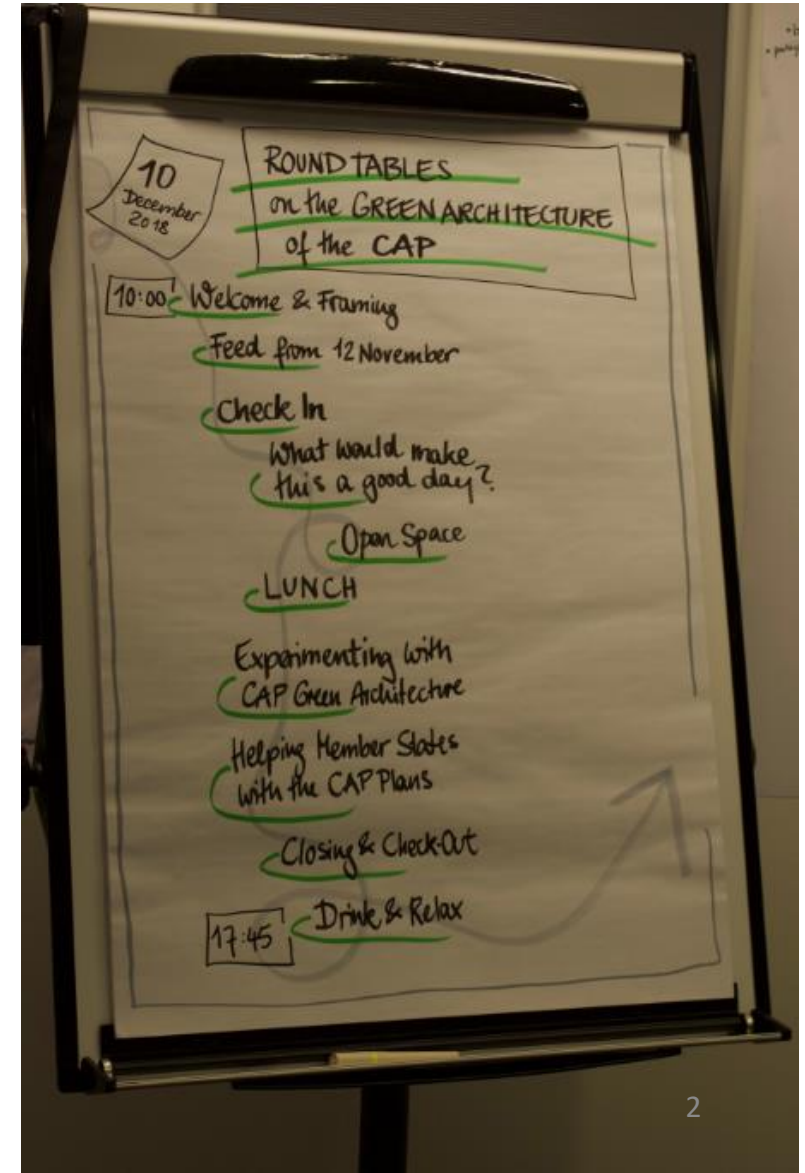 10
December
2018
ROUND TABLES
on the GREEN ARCHITECTURE
of the CAP
10:00 Welcome & Framing
Feed from 12 November
Check In
What would make
this a good day?
Open Space
LUNCH
Experimenting with
CAP Green Architecture
Helping Member States
with the CAP Plans
Closing & Check-Out
17:45 Drink & Relax
2